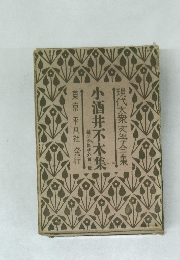 現代大衆文学全集
小酒井不木集
東京 平凡社 発行